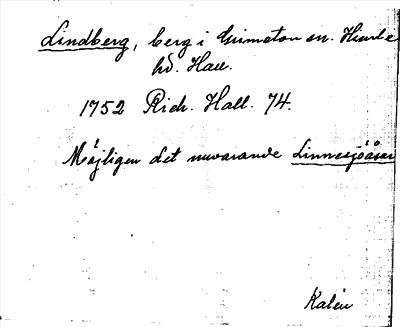 Lindberg, berg i Grimeton sn. Himle
hd. Hall.
1752 Rich. Hall. 74.
Möjligen det nuvarande Linnesjöåsen
Kalén